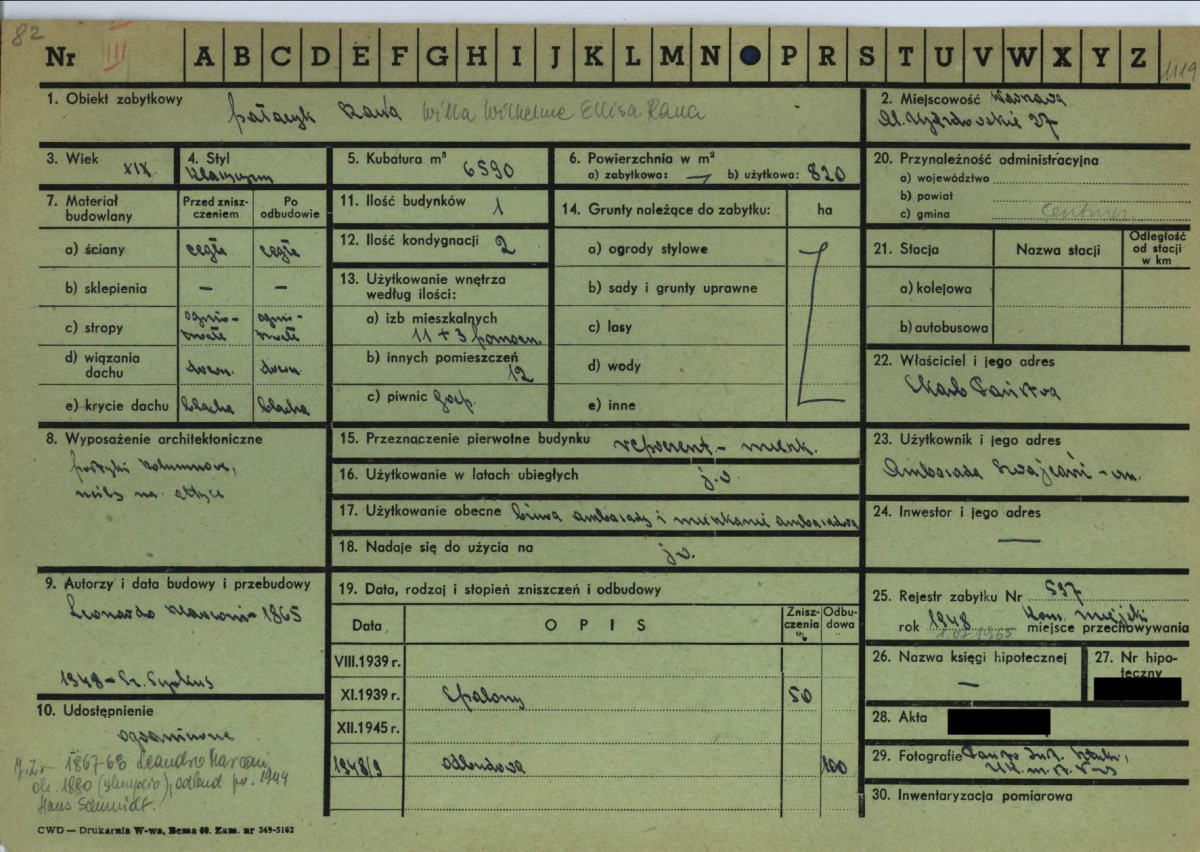 82
Nr III A B C D E F G H I J K L M N P R S T U V W X Y Z
1119
1. Obiekt zabytkowy pałacyk Raua Willa Wilhelma Ellisa Raua
2. Miejscowość Warszawa
Al. Ujazdowskie 27
3. Wiek XIX.
4. Styl
klasycyzm
5. Kubatura m³ 6590
6. Powierzchnia w m²
a) zabytkowa: — b) użytkowa: 820
7. Materiał budowlany
Przed zniszczeniem
Po odbudowie
a) ściany cegła cegła
b) sklepienia — —
c) stropy ognio-trwałe ognio-trwałe
d) wiązania dachu drewn. drewn.
e) krycie dachu blacha blacha
8. Wyposażenie architektoniczne
portyki kolumnowe,
na attyce
9. Autorzy i data budowy i przebudowy
Leonardo Marconi – 1865
1948 –
10. Udostępnienie
ograniczone
1867-68 Leandro Marconi
ok. 1880 odbud po. 1944
Hans Schmidt.
11. Ilość budynków 1
12. Ilość kondygnacji 2
13. Użytkowanie wnętrza
według ilości:
a) izb mieszkalnych
11 + 3 pomocn.
b) innych pomieszczeń
12
c) piwnic gosp.
14. Grunty należące do zabytku: ha
a) ogrody stylowe
b) sady i grunty uprawne
c) lasy
d) wody
e) inne
15. Przeznaczenie pierwotne budynku reprezent. – mieszk.
16. Użytkowanie w latach ubiegłych j.w.
17. Użytkowanie obecne biura ambasady i mieszkanie ambasadora
18. Nadaje się do użycia na j.w.
19. Data, rodzaj i stopień zniszczeń i odbudowy
Data OPIS Zniszczenia % Odbudowa
VIII.1939 r.
XI.1939 r. Spalony 50
XII.1945 r.
1948/9 odbudowa 100
20. Przynależność administracyjna
a) województwo
b) powiat
c) gmina
21. Stacja Nazwa stacji Odległość od stacji w km
a) kolejowa
b) autobusowa
22. Właściciel i jego adres
Skarb Państwa
23. Użytkownik i jego adres
Ambasada
24. Inwestor i jego adres
—
25. Rejestr zabytku Nr 597
rok 1948 Kons. miejski
1.07.1965 miejsce przechowywania
26. Nazwa księgi hipotecznej
—
27. Nr hipoteczny
28. Akta
29. Fotografie Państ. Inst. Sztuki,
30. Inwentaryzacja pomiarowa
CWD — Drukarnia W-wa, Bema 60. Zam. nr 349-5162